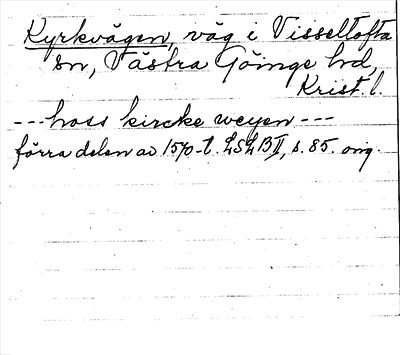 Kyrkvägen, väg i Visseltofta
sn, Västra Göinge hd,
Krist. l.
--- hoss kircke weyen ---
förra delen av 1570-t. LSLB II, s. 85. orig.